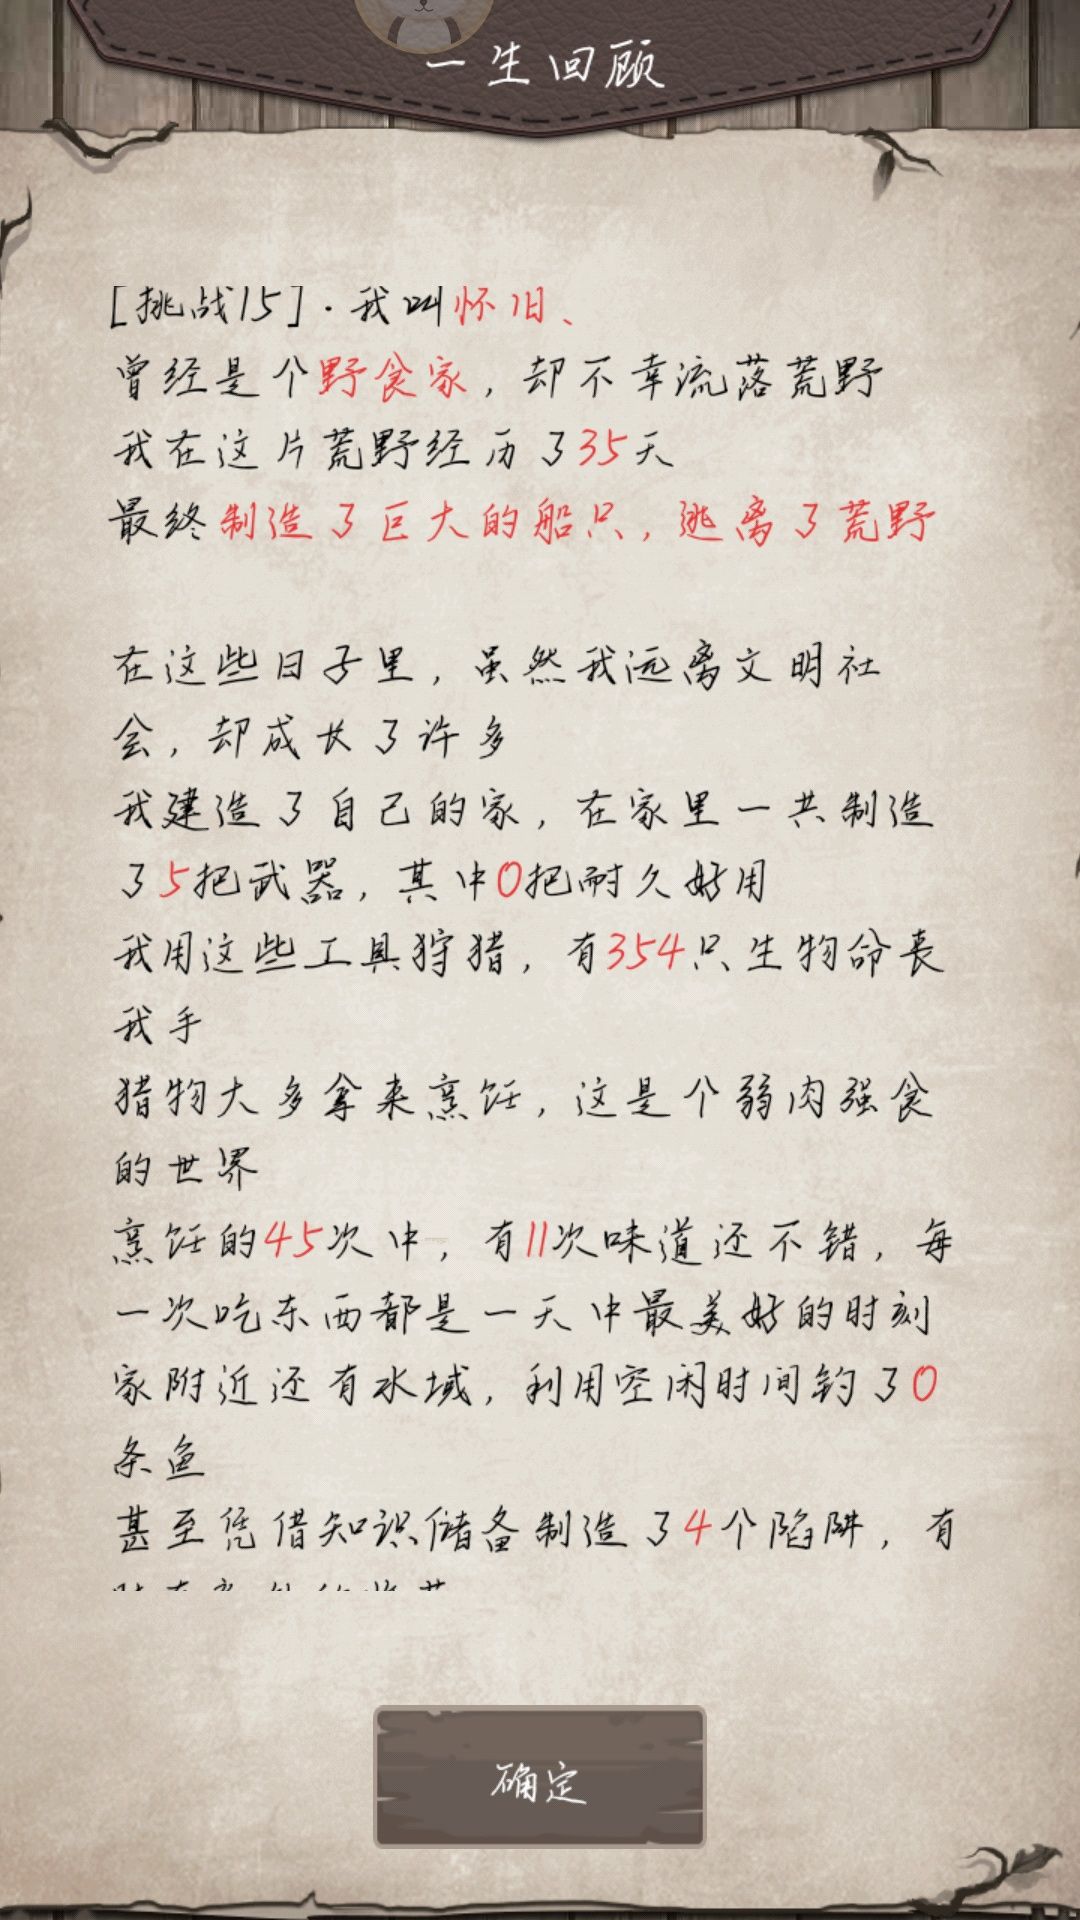 一生回顾
[挑战15]·我叫怀旧、
曾经是个野食家，却不幸流落荒野
我在这片荒野经历了35天
最终制造了巨大的船只，逃离了荒野
在这些日子里，虽然我远离文明社
会，却成长了许多
我建造了自己的家，在家里一共制造
了5把武器，其中0把耐久好用
我用这些工具狩猎，有354只生物命丧
我手
猎物大多拿来烹饪，这是个弱肉强食
的世界
烹饪的45次中，有11次味道还不错，每
一次吃东西都是一天中最美好的时刻
家附近还有水域，利用空闲时间钓了0
条鱼
甚至凭借知识储备制造了4个陷阱，有
确定